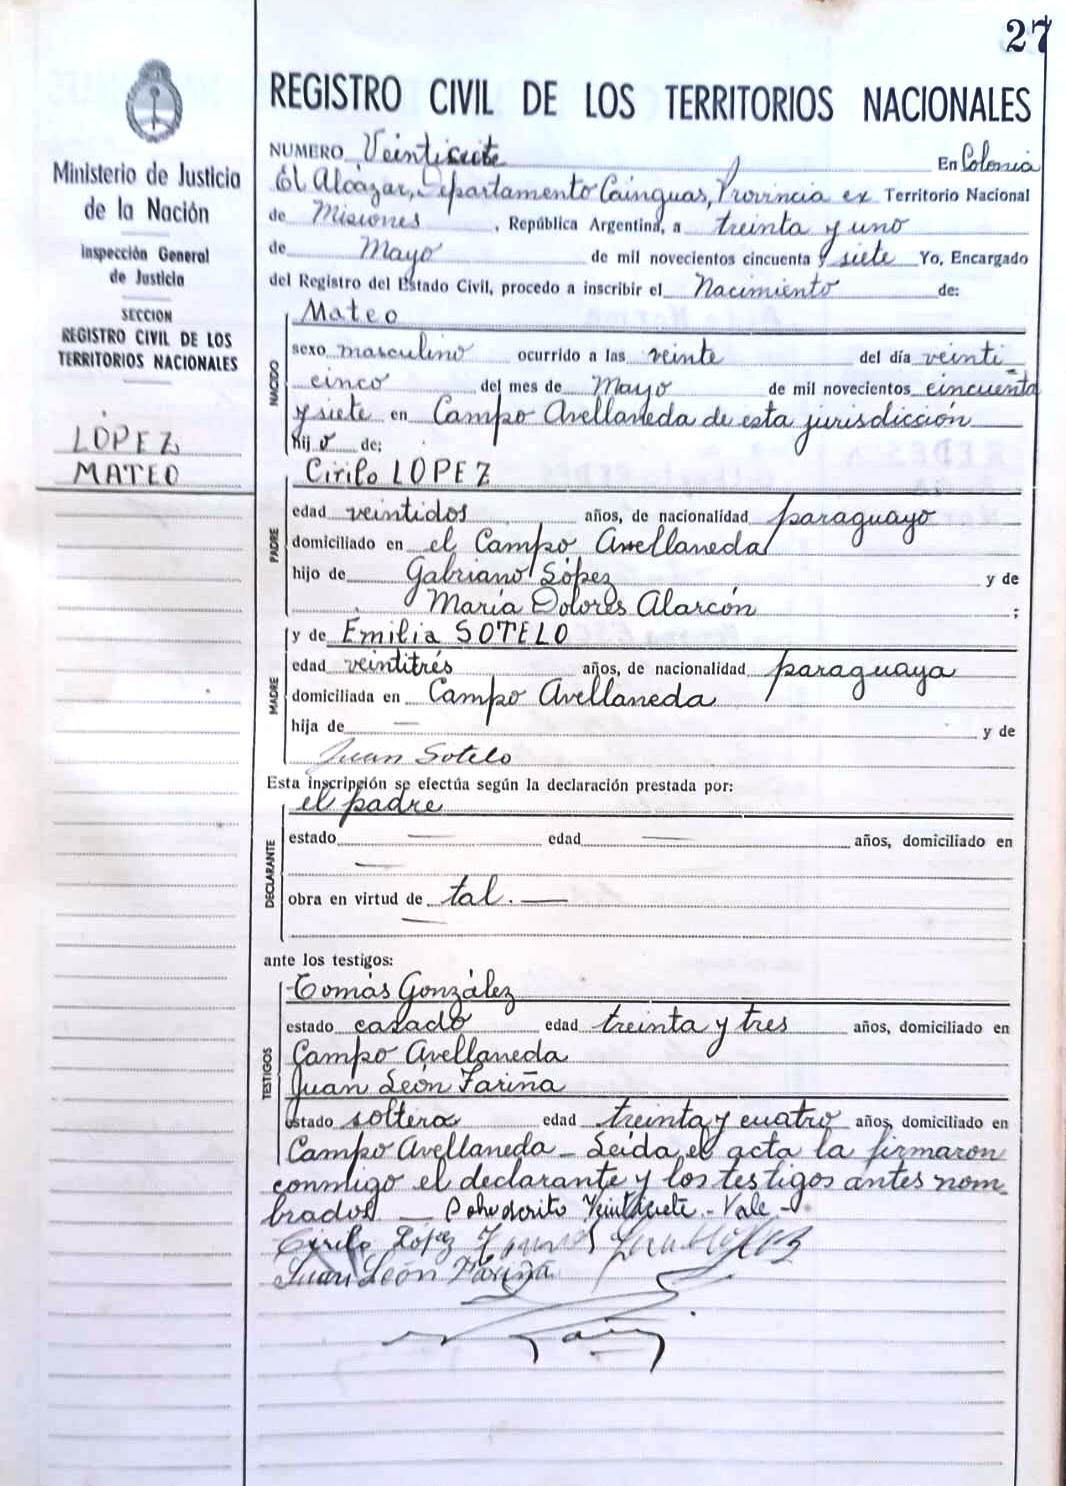 27
Ministerio de Justicia
de la Nación
Inspección General
de Justicia
SECCION
REGISTRO CIVIL DE LOS
TERRITORIOS NACIONALES
LÓPEZ
MATEO
REGISTRO CIVIL DE LOS TERRITORIOS NACIONALES
NUMERO Veintisiete En Colonia
El Alcázar, Departamento Cainguas, Provincia ex Territorio Nacional
de Misiones, República Argentina, a treinta y uno
de Mayo de mil novecientos cincuenta y siete Yo, Encargado
del Registro del Estado Civil, procedo a inscribir el Nacimiento de:
NACIDO
Mateo
sexo masculino ocurrido a las veinte del día veinti
cinco del mes de Mayo de mil novecientos cincuenta
y siete en Campo Avellaneda de esta jurisdicción
hijo de:
PADRE
Cirilo LOPEZ
edad veintidos años, de nacionalidad paraguayo
domiciliado en el Campo Avellaneda
hijo de Gabriano López y de
María Dolores Alarcón ;
MADRE
y de Emilia SOTELO
edad veintitrés años, de nacionalidad paraguaya
domiciliada en Campo Avellaneda
hija de — y de
Juan Sotelo
Esta inscripción se efectúa según la declaración prestada por:
DECLARANTE
el padre
estado — edad — años, domiciliado en
—
obra en virtud de tal. —
—
ante los testigos:
TESTIGOS
Tomás González
estado casado edad treinta y tres años, domiciliado en
Campo Avellaneda
Juan León Fariña
estado soltero edad treinta y cuatro años, domiciliado en
Campo Avellaneda - Leída el acta la firmaron
conmigo el declarante y los testigos antes nom-
brados — Veintisiete - Vale -
Cirilo López
Juan León Fariña